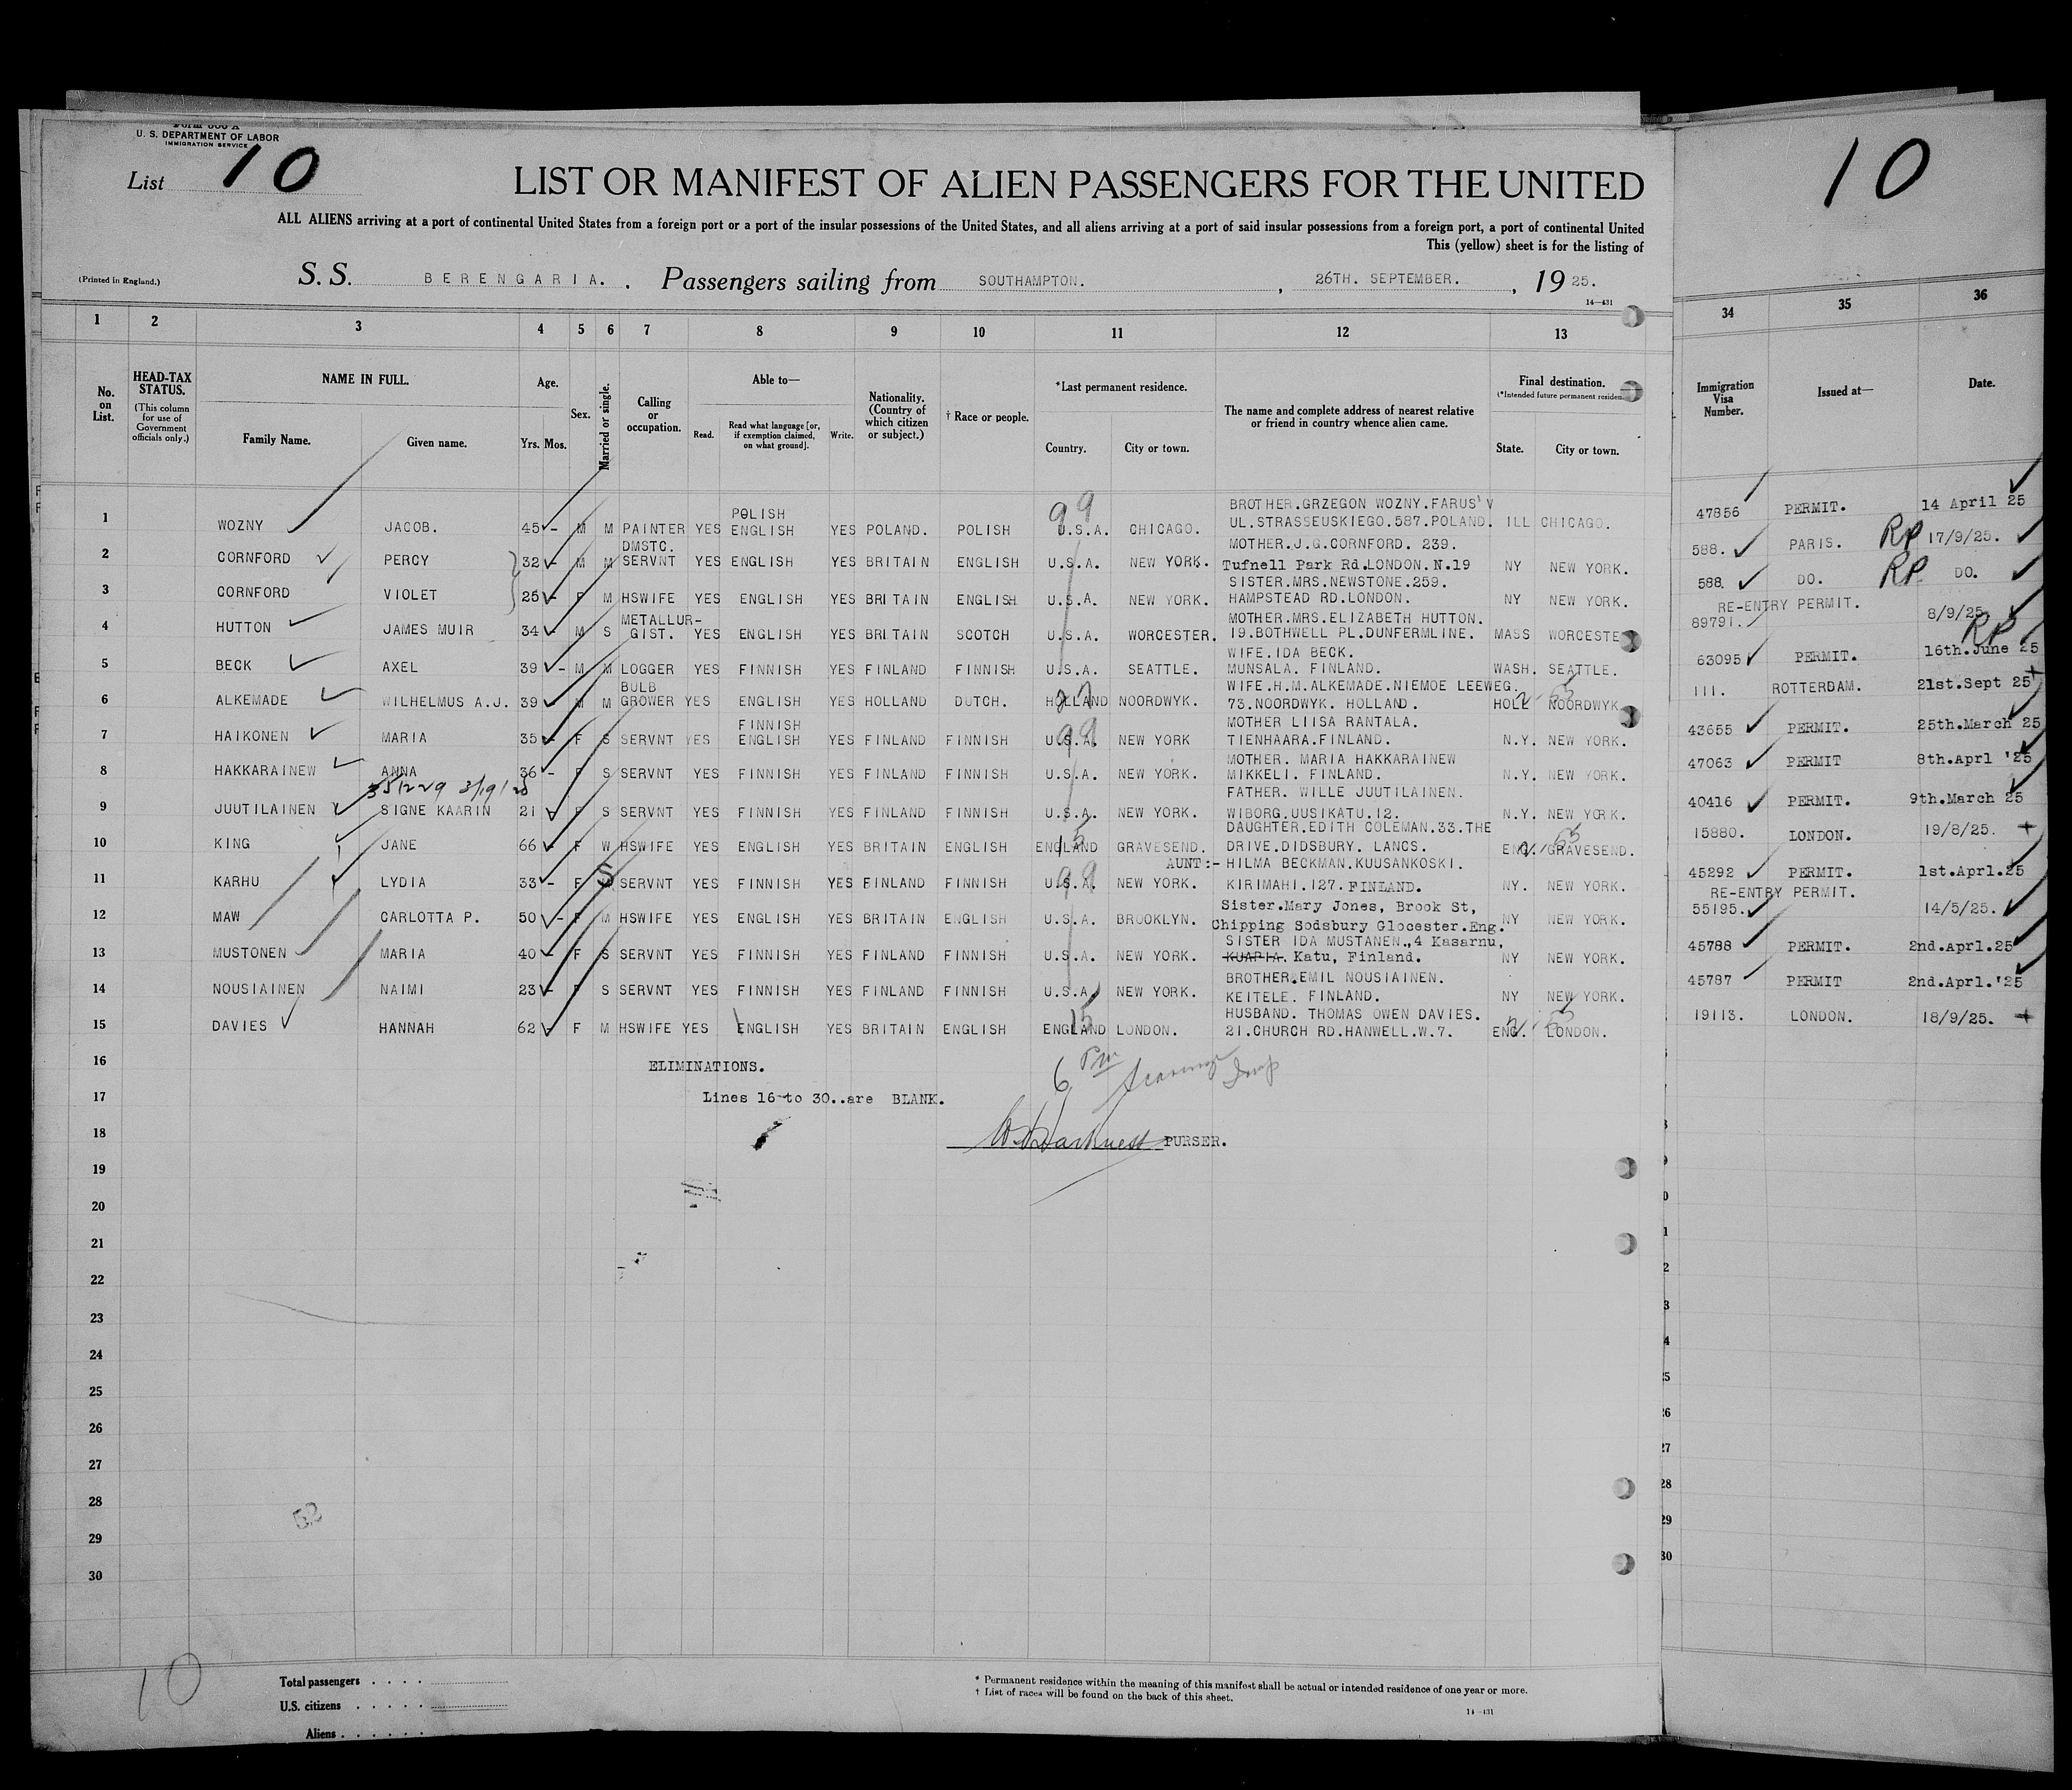 Form 600 A
U. S. DEPARTMENT OF LABOR
IMMIGRATION SERVICE
List 10
10
LIST OR MANIFEST OF ALIEN PASSENGERS FOR THE UNITED
ALL ALIENS arriving at a port of continental United States from a foreign port or a port of the insular possessions of the United States, and all aliens arriving at a port of said insular possessions from a foreign port, a port of continental United
This (yellow) sheet is for the listing of
(Printed in England.) S. S. BERENGARIA. . Passengers sailing from SOUTHAMPTON. , 26TH. SEPTEMBER. , 19 25.
14—431
1 2 3 4 5 6 7 8 9 10 11 12 13 34 35 36
No. on List. HEAD-TAX STATUS. (This column for use of Government officials only.) NAME IN FULL. Family Name. Given name. Age. Yrs. Mos. Sex. Married or single. Calling or occupation. Able to— Read. Read what language [or, if exemption claimed, on what ground]. Write. Nationality. (Country of which citizen or subject.) † Race or people. *Last permanent residence. Country. City or town. The name and complete address of nearest relative or friend in country whence alien came. Final destination. (*Intended future permanent residen State. City or town. Immigration Visa Number. Issued at— Date.
POLISH 99 BROTHER.GRZEGON WOZNY.FARUS'V
1 WOZNY JACOB. 45 - M M PAINTER YES ENGLISH YES POLAND. POLISH U.S.A. CHICAGO. UL.STRASSEUSKIEGO.587.POLAND. ILL CHICAGO. 47856 PERMIT. 14 April 25
DMSTC. MOTHER.J.G.CORNFORD. 239.
2 CORNFORD PERCY 32 - M M SERVNT YES ENGLISH YES BRITAIN ENGLISH U.S.A. NEW YORK. Tufnell Park Rd.LONDON.N.19 NY NEW YORK. 588. PARIS. RP 17/9/25.
SISTER.MRS.NEWSTONE.259.
3 CORNFORD VIOLET 25 - F M HSWIFE YES ENGLISH YES BRITAIN ENGLISH U.S.A. NEW YORK. HAMPSTEAD RD.LONDON. NY NEW YORK. 588. DO. RP DO.
METALLUR- MOTHER.MRS.ELIZABETH HUTTON. RE-ENTRY PERMIT.
4 HUTTON JAMES MUIR 34 - M S GIST. YES ENGLISH YES BRITAIN SCOTCH U.S.A. WORCESTER. 19.BOTHWELL PL.DUNFERMLINE. MASS WORCESTE 89791. 8/9/25 RP
WIFE.IDA BECK.
5 BECK AXEL 39 - M M LOGGER YES FINNISH YES FINLAND FINNISH U.S.A. SEATTLE. MUNSALA. FINLAND. WASH. SEATTLE. 63095 PERMIT. 16th.June 25
BULB WIFE.H.M.ALKEMADE.NIEMOE LEEWEG.
6 ALKEMADE WILHELMUS A.J. 39 - M M GROWER YES ENGLISH YES HOLLAND DUTCH. HOLLAND NOORDWYK. 73.NOORDWYK. HOLLAND. HOLL NOORDWYK 111. ROTTERDAM. 21st.Sept 25
FINNISH 99 MOTHER LIISA RANTALA.
7 HAIKONEN MARIA 35 - F S SERVNT YES ENGLISH YES FINLAND FINNISH U.S.A. NEW YORK TIENHAARA.FINLAND. N.Y. NEW YORK. 43655 PERMIT. 25th.March 25
MOTHER. MARIA HAKKARAINEW
8 HAKKARAINEW ANNA 36 - F S SERVNT YES FINNISH YES FINLAND FINNISH U.S.A. NEW YORK. MIKKELI. FINLAND. N.Y. NEW YORK. 47063 PERMIT 8th.Aprl '25
FATHER. WILLE JUUTILAINEN.
9 JUUTILAINEN SIGNE KAARIN 21 - F S SERVNT YES FINNISH YES FINLAND FINNISH U.S.A. NEW YORK. WIBORG.UUSIKATU.12. N.Y. NEW YORK. 40416 PERMIT. 9th.March 25
DAUGHTER.EDITH COLEMAN.33.THE
10 KING JANE 66 - F W HSWIFE YES ENGLISH YES BRITAIN ENGLISH ENGLAND 15 GRAVESEND. DRIVE.DIDSBURY. LANCS. ENG. GRAVESEND. 15880. LONDON. 19/8/25.
AUNT:- HILMA BECKMAN.KUUSANKOSKI.
11 KARHU LYDIA 33 - F S SERVNT YES FINNISH YES FINLAND FINNISH U.S.A. 99 NEW YORK. KIRIMAHI.127.FINLAND. NY. NEW YORK. 45292 PERMIT. 1st.Aprl.25
Sister.Mary Jones, Brook St, RE-ENTRY PERMIT.
12 MAW CARLOTTA P. 50 - F M HSWIFE YES ENGLISH YES BRITAIN ENGLISH U.S.A. BROOKLYN. Chipping Sodsbury Glocester.Eng. NY NEW YORK. 55195. 14/5/25.
SISTER IDA MUSTANEN.,4 Kasarnu,
13 MUSTONEN MARIA 40 - F S SERVNT YES FINNISH YES FINLAND FINNISH U.S.A. NEW YORK. KUAPIA. Katu, Finland. NY NEW YORK. 45788 PERMIT. 2nd.Aprl.25
BROTHER.EMIL NOUSIAINEN.
14 NOUSIAINEN NAIMI 23 - F S SERVNT YES FINNISH YES FINLAND FINNISH U.S.A. NEW YORK. KEITELE. FINLAND. NY NEW YORK. 45787 PERMIT 2nd.Aprl.'25
HUSBAND. THOMAS OWEN DAVIES.
15 DAVIES HANNAH 62 - F M HSWIFE YES ENGLISH YES BRITAIN ENGLISH ENGLAND 15 LONDON. 21.CHURCH RD.HANWELL.W.7. ENG. LONDON. 19113. LONDON. 18/9/25.
16 ELIMINATIONS.
17 Lines 16 to 30..are BLANK.
18 PURSER.
19
20
21
22
23
24
25
26
27
28
29
30
52
10
Total passengers . . . .
U.S. citizens . . . . .
Aliens . . . . . .
* Permanent residence within the meaning of this manifest shall be actual or intended residence of one year or more.
† List of races will be found on the back of this sheet.
14—431